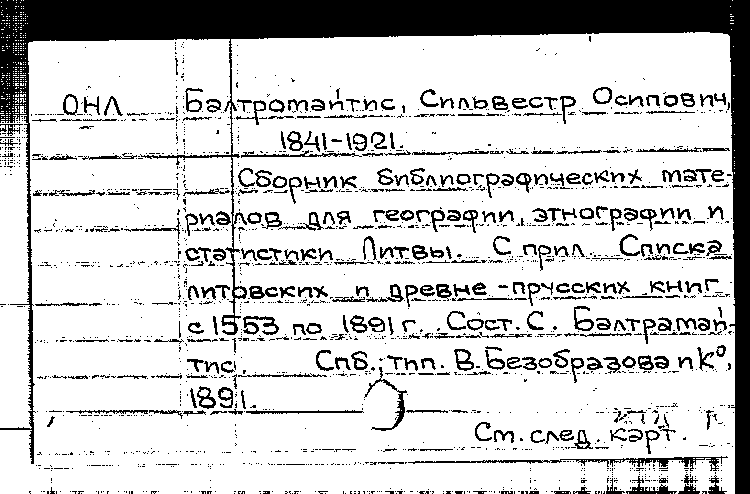 ОНЛ Балтромайтис, Сильвестр Осипович,
1841-1921.
Сборник библиографических мате-
риалов для географии, этнографии и
статистики Литвы. С прил. Списка
литовских и древне-прусских книг
с 1553 по 1891 г. Сост. С. Балтрамай-
тис. Спб., тип. В. Безобразова и К°,
1891.
См. след. карт.